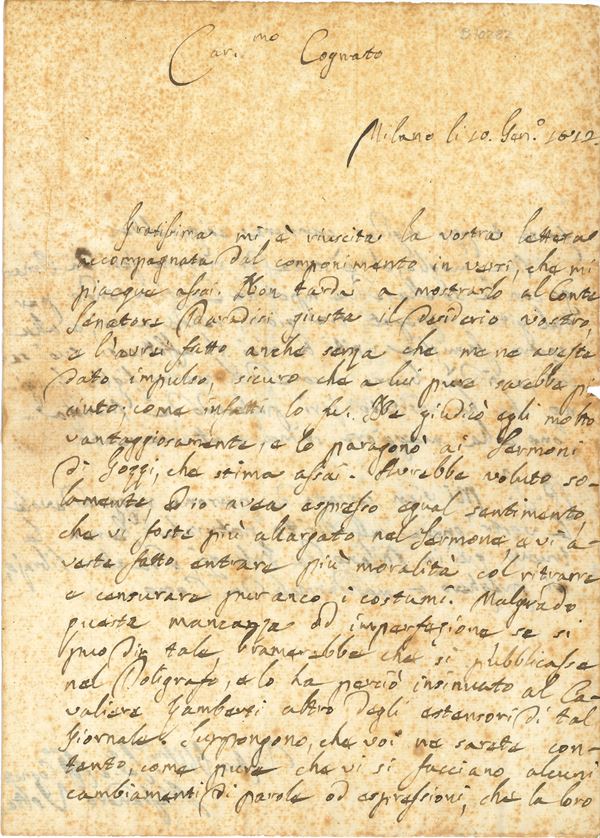 B30282
Car.mo Cognato
Milano li 10. Gen.o 1812.
Gratissima mi è riuscita la vostra lettera
accompagnata dal componimento in versi, che mi
piacque assai. Non tardai a mostrarlo al Conte
Senatore Paradisi giusta il desiderio vostro,
e l'avrei fatto anche senza che me ne aveste
dato impulso, sicuro che a lui pure sarebbe pia-
ciuto; come infatti lo fu. Ne giudicò egli molto
vantaggiosamente, e lo paragonò ai Sermoni
di Gozzi, che stima assai. Avrebbe voluto so-
lamente ed io avea espresso egual sentimento,
che vi foste più allargato nel Sermone, e vi a-
veste fatto entrare più moralità col ritrarre
e censurare puranco i costumi. Malgrado
questa mancanza od imperfezione se si
può dir tale bramerebbe che si pubblicasse
nel Poligrafo, e lo ha perciò insinuato al Ca-
valiere Lamberti altro degli estensori di tal
Giornale. Suppongono, che voi ne sarete con-
tento, come pure che vi si facciano alcuni
cambiamenti di parole od espressioni, che la loro